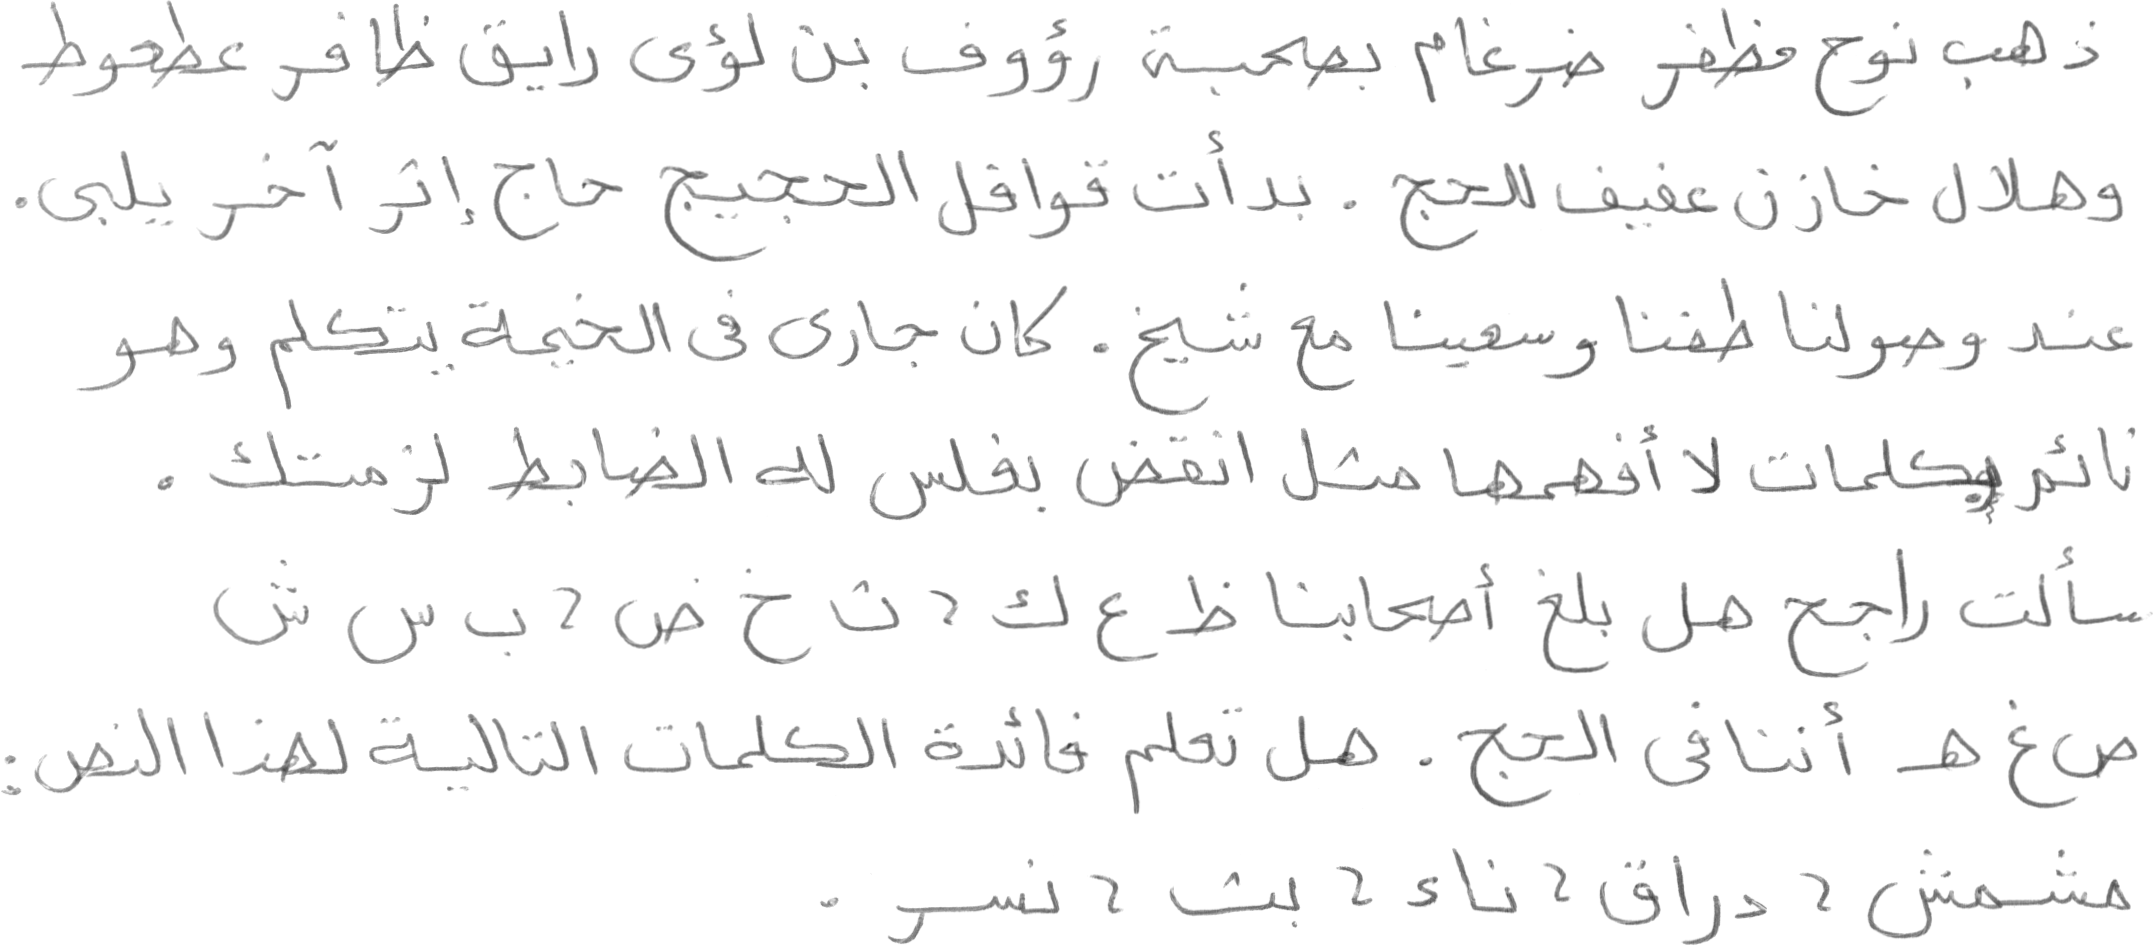 ذهب نوح مظفر ضرغام بصحبة رؤوف بن لؤى رايق ظافر عطعوط
وهلال خازن عفيف للحج . بدأت قوافل الحجيج حاج إثر آخر يلبى .
عند وصولنا طفنا وسعينا مع شيخ . كان جارى فى الخيمة يتكلم وهو
نائم بكلمات لا أفهمها مثل انقض بفلس لله الضابط لزمتك .
سألت راجح هل بلغ أصحابنا ظ ع ك ، ث خ ض ، ب س ش
ص غ هـ أننا فى الحج . هل تعلم فائدة الكلمات التالية لهذا النص :
مشمش ، دراق ، ناء ، بث ، نسر .